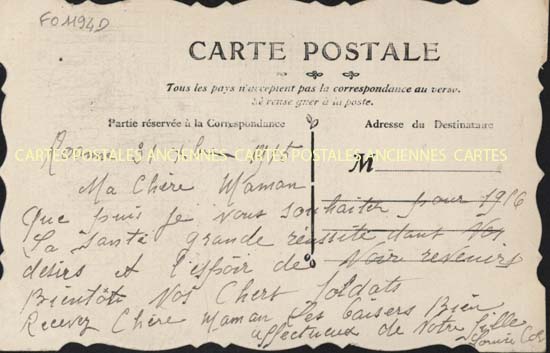 FO1194D
CARTE POSTALE
Tous les pays n'acceptent pas la correspondance au verso.
Se renseigner à la poste.
Partie réservée à la Correspondance
Adresse du Destinataire
31 1915
CARTES POSTALES ANCIENNES CARTES POSTALES ANCIENNES CARTES
M
Ma Chère Maman
Que puis je vous souhaiter pour 1916
La Santé grande réussite dans vos
désirs et l'espoir de Voir revenirs
Bientôt Nos Chers Soldats
Recevez Chère Maman les baisers Bien
affectueux de Votre fille
Louise